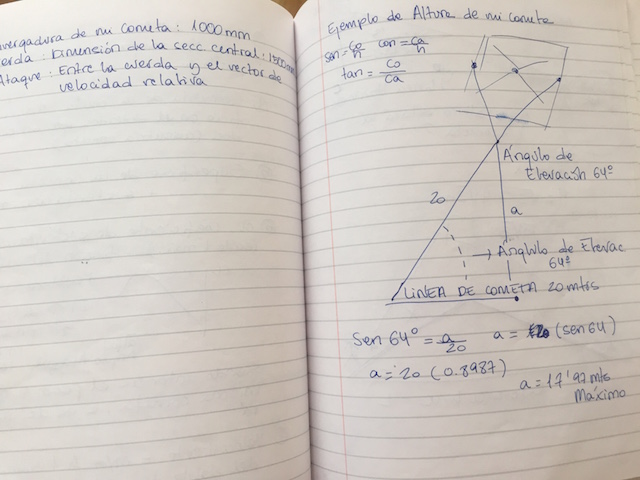 vergadura de mi cometa: 1000mm
erda: Dimensión de la secc central:
Ataque: Entre la cuerda y el vector de
velocidad relativa
Ejemplo de Altura de mi cometa
sen = co/h con = ca/h
tan = co/ca
Ángulo de
Elevación 64º
20
a
Ángulo de Elevac
64º
LINEA DE COMETA 20 mtrs
Sen 64º = a/20 a = 20 (sen 64)
a = 20 (0.8987)
a = 17'97 mts
Máximo